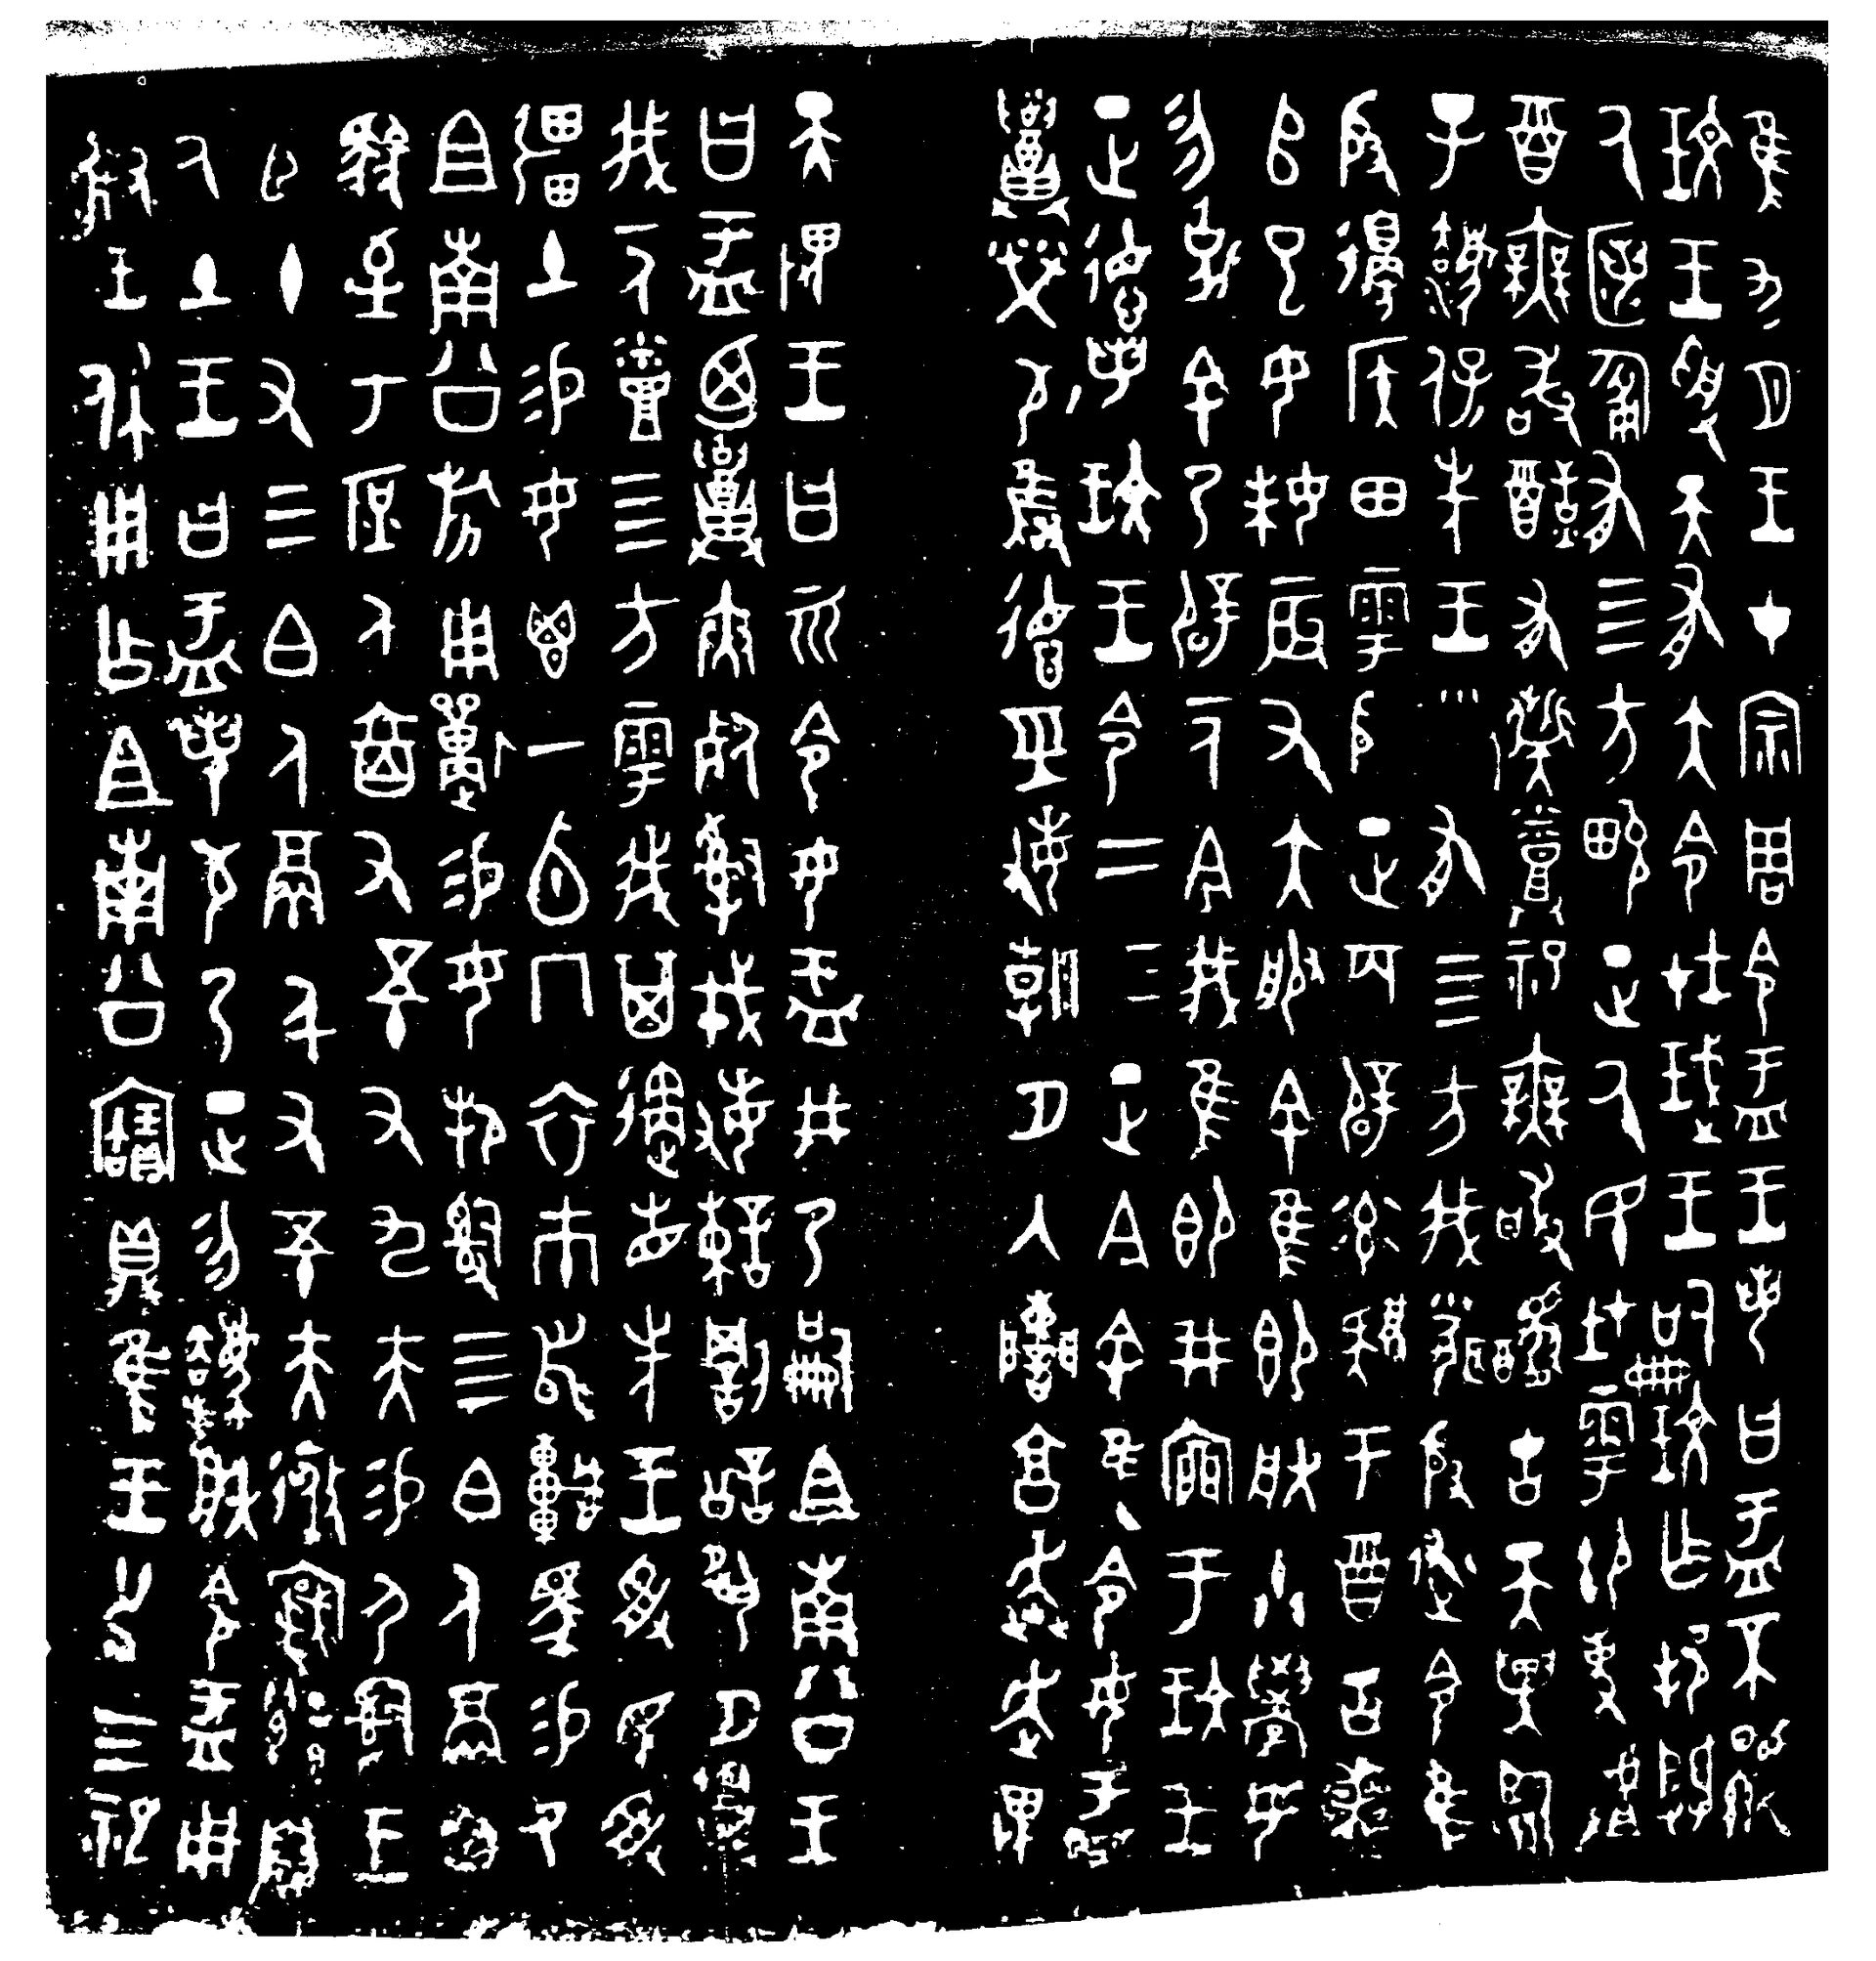 隹九月王才宗周令盂王若曰盂不顯
玟王受天有大令在珷王嗣玟乍邦闢
厥匿匍有四方畯正厥民在雩御事𠭯
酉無敢酖有祡烝祀無敢醻古天異臨
子灋保先王□有四方我聞殷述令隹
殷邊侯田雩殷正百辟率肄于酉古喪
𠂤巳女妹辰又大服余隹即朕小學女
勿克余乃辟一人今我隹即井㐭于玟王
正德若玟王令二三正今余隹令女盂
召榮敬雍德巠敏朝夕入讕享奔走畏
天畏王曰𠀠令女盂井乃嗣且南公王
曰盂廼召夾死司戎敏諫罰訟夙夕召
我一人烝四方雩我其遹省先王受民受
疆土易女鬯一卣冂衣巿舄車馬易乃
且南公旂用狩易女邦司四白人鬲自
馭至于庶人六百又五十又九夫易尸司王
臣十又三白人鬲千又五十夫𢓊𡩜遷自
厥土王曰盂若敬乃正勿灋朕令盂用
對王休用乍且南公寶鼎隹王廿又三祀